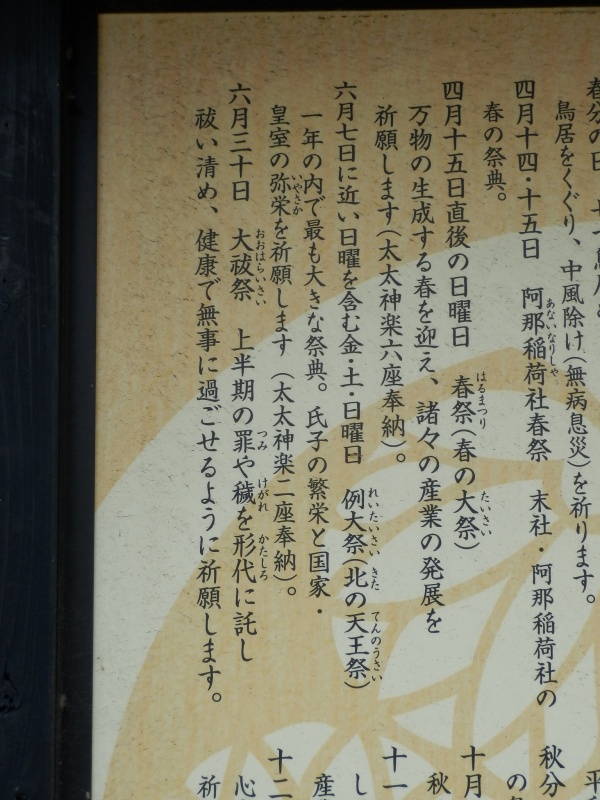 春分の日
鳥居をくぐり、中風除け(無病息災)を祈ります。
四月十四・十五日　阿那稲荷社春祭　末社・阿那稲荷社の
あないなりしゃ
春の祭典。
四月十五日直後の日曜日　春祭(春の大祭)
はるまつり　たいさい
万物の生成する春を迎え、諸々の産業の発展を
祈願します(太太神楽六座奉納)。
六月七日に近い日曜を含む金・土・日曜日　例大祭(北の天王祭)
れいたいさい　きた　てんのうさい
一年の内で最も大きな祭典。氏子の繁栄と国家・
皇室の弥栄を祈願します(太太神楽二座奉納)。
いやさか
六月三十日　大祓祭　上半期の罪や穢を形代に託し
おおはらいさい　つみ　けがれ　かたしろ
祓い清め、健康で無事に過ごせるように祈願します。
秋分
の
十月
秋
十一
し
産
十二
心
祈